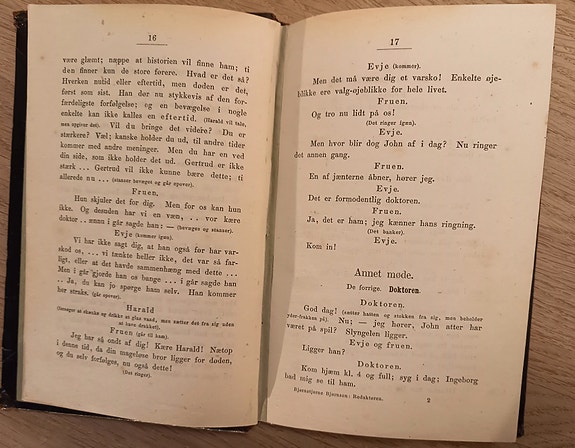 16
være glæmt; næppe at historien vil finne ham; ti
den finner kun de store førere. Hvad er det så?
Hverken nutid eller eftertid, men døden er det,
først som sist. Han der nu stykkevis af den for-
færdeligste forfølgelse; og en bevægelse i nogle
enkelte kan ikke kalles en eftertid. (Harald vil tale,
men opgiver det). Vil du bringe det videre? Du er
stærkere? Væl; kanske holder du ud, til andre tider
kommer med andre meninger. Men du har en ved
din side, som ikke holder det ud. Gertrud er ikke
stærk ... Gertrud vil ikke kunne bære dette; ti
allerede nu ... (stanser bevæget og går opover).
Fruen.
Hun skjuler det for dig. Men for os kan hun
ikke. Og desuden har vi en væn, .. vor kære
doktor .. ænnu i går sagde han: — (bevæges og stanser).
Evje (kommer igæn).
Vi har ikke sagt dig, at han også før har var-
skod os, ... vi tænkte heller ikke, det var så far-
ligt, eller at det havde sammenhæng med dette ...
Men i går gjorde han os bange ... i går sagde han
.. Ja, du kan jo spørge ham selv. Han kommer
her straks. (går opover).
Harald
(bevæger at skænke og drikke et glas vand, men sætter det fra sig uden
at have drukket).
Fruen (går til ham).
Jeg har så ondt af dig! Kære Harald! Nætop
i denne tid, da din mageløse bror ligger for døden,
og du selv forfølges, nu også dette!
(Det ringer).
17
Evje (kommer).
Men det må være dig et varsko! Enkelte øje-
blikke ere valg-øjeblikke for hele livet.
Fruen.
Og tro nu lidt på os!
(Det ringer igæn).
Evje.
Men hvor blir dog John af i dag? Nu ringer
det annen gang.
Fruen.
En af jænterne åbner, hører jeg.
Evje.
Det er formodentlig doktoren.
Fruen.
Ja, det er ham; jeg kænner hans ringning.
(Det banker).
Evje.
Kom in!
Annet møde.
De forrige. Doktoren.
Doktoren.
God dag! (sætter hatten og stokken fra sig, men beholder
yder-frakken på). Nu; — jeg hører, John atter har
været på spil? Slyngelen ligger.
Evje og fruen.
Ligger han?
Doktoren.
Kom hjæm kl. 4 og full; syg i dag; Ingeborg
bad mig se til ham.
Bjørnstjerne Bjørnson: Redaktøren. 2